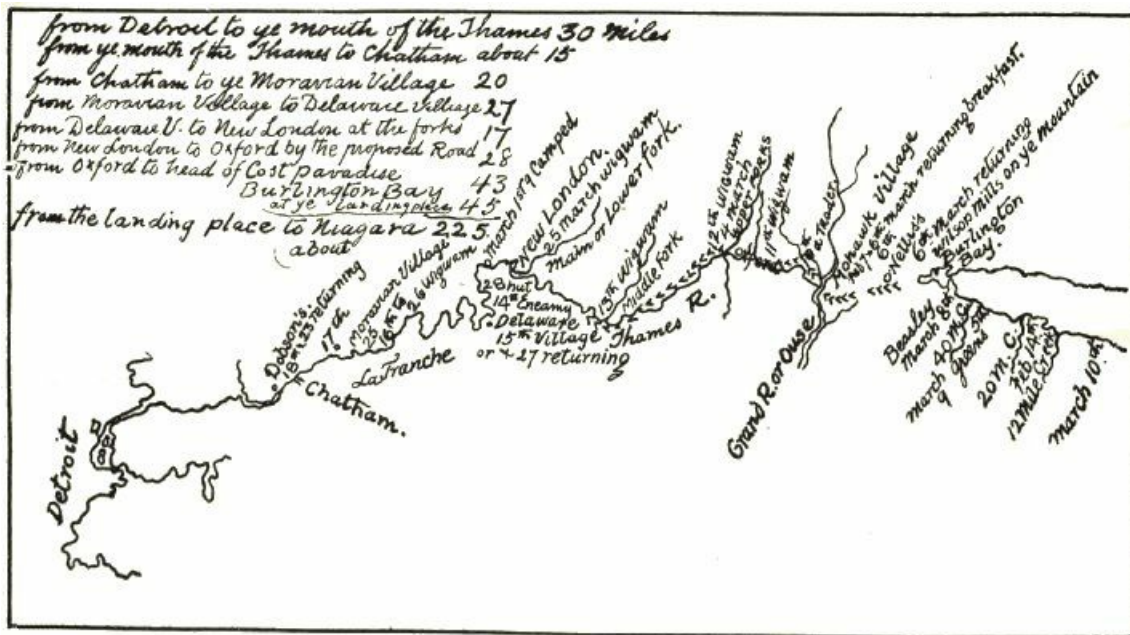 from Detroit to ye mouth of the Thames 30 miles
from ye mouth of the Thames to Chatham about 15
from Chatham to ye Moravian Village 20
from Moravian Village to Delaware Village 27
from Delaware V. to New London at the forks 17
from New London to Oxford by the proposed Road 28
from Oxford to head of Cost paradise
Burlington Bay 43
at ye landing place 45
from the landing place to Niagara 225
about
Detroit
Dobson's.
18th & 23 returning
Chatham.
17th
Moravian Village
25
16th to
26 Wigwam
La Franche
28 hut
14th Eneamy
Delaware
15th Village
or & 27 returning
March 1st 9 Camped
New London.
25 march wigwam
Main or Lower fork.
13th wigwam
Middle fork
Thames R.
12th wigwam
4 March
11th Wigwam
a Trader
Grand R. or Ouse
Mohawk Village
6th march returning breakfast.
Nelles's
6th March returning
Wilson Mills on ye mountain
Burlington
Bay.
Beasley
March 8th
40 M.C.
greens
march 9
20 M. C.
Feb. 14th
12 Mile Creek
march 10th